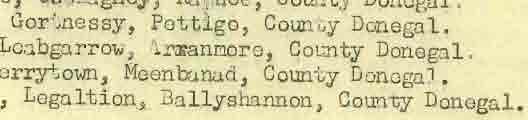 County Donegal.
Gortnessy, Pettigo, County Donegal.
Loabgarrow, Arranmore, County Donegal.
errytown, Meenbanad, County Donegal.
, Legaltion, Ballyshannon, County Donegal.